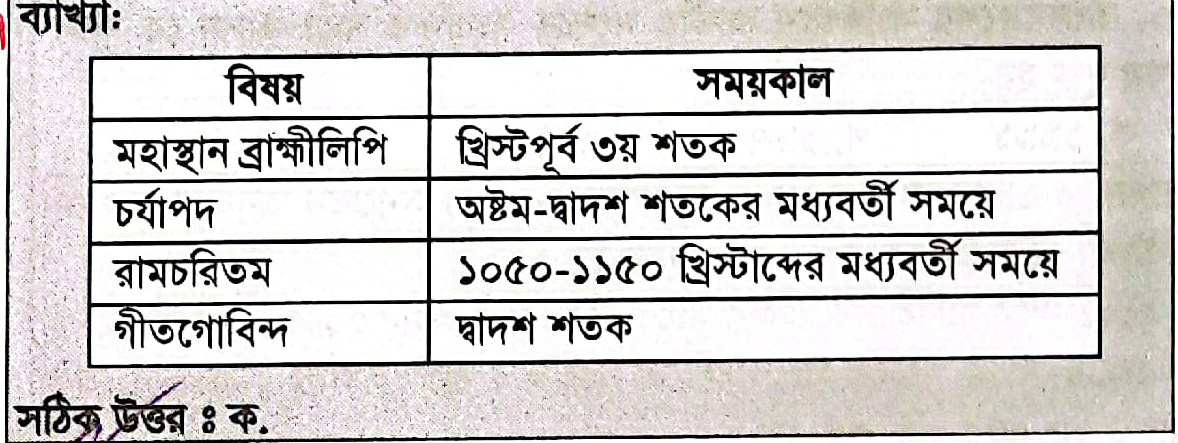 ব্যাখ্যা:
বিষয় সময়কাল
মহাস্থান ব্রাহ্মীলিপি খ্রিস্টপূর্ব ৩য় শতক
চর্যাপদ অষ্টম-দ্বাদশ শতকের মধ্যবর্তী সময়ে
রামচরিতম ১০৫০-১১৫০ খ্রিস্টাব্দের মধ্যবর্তী সময়ে
গীতগোবিন্দ দ্বাদশ শতক
সঠিক উত্তর ঃ ক.